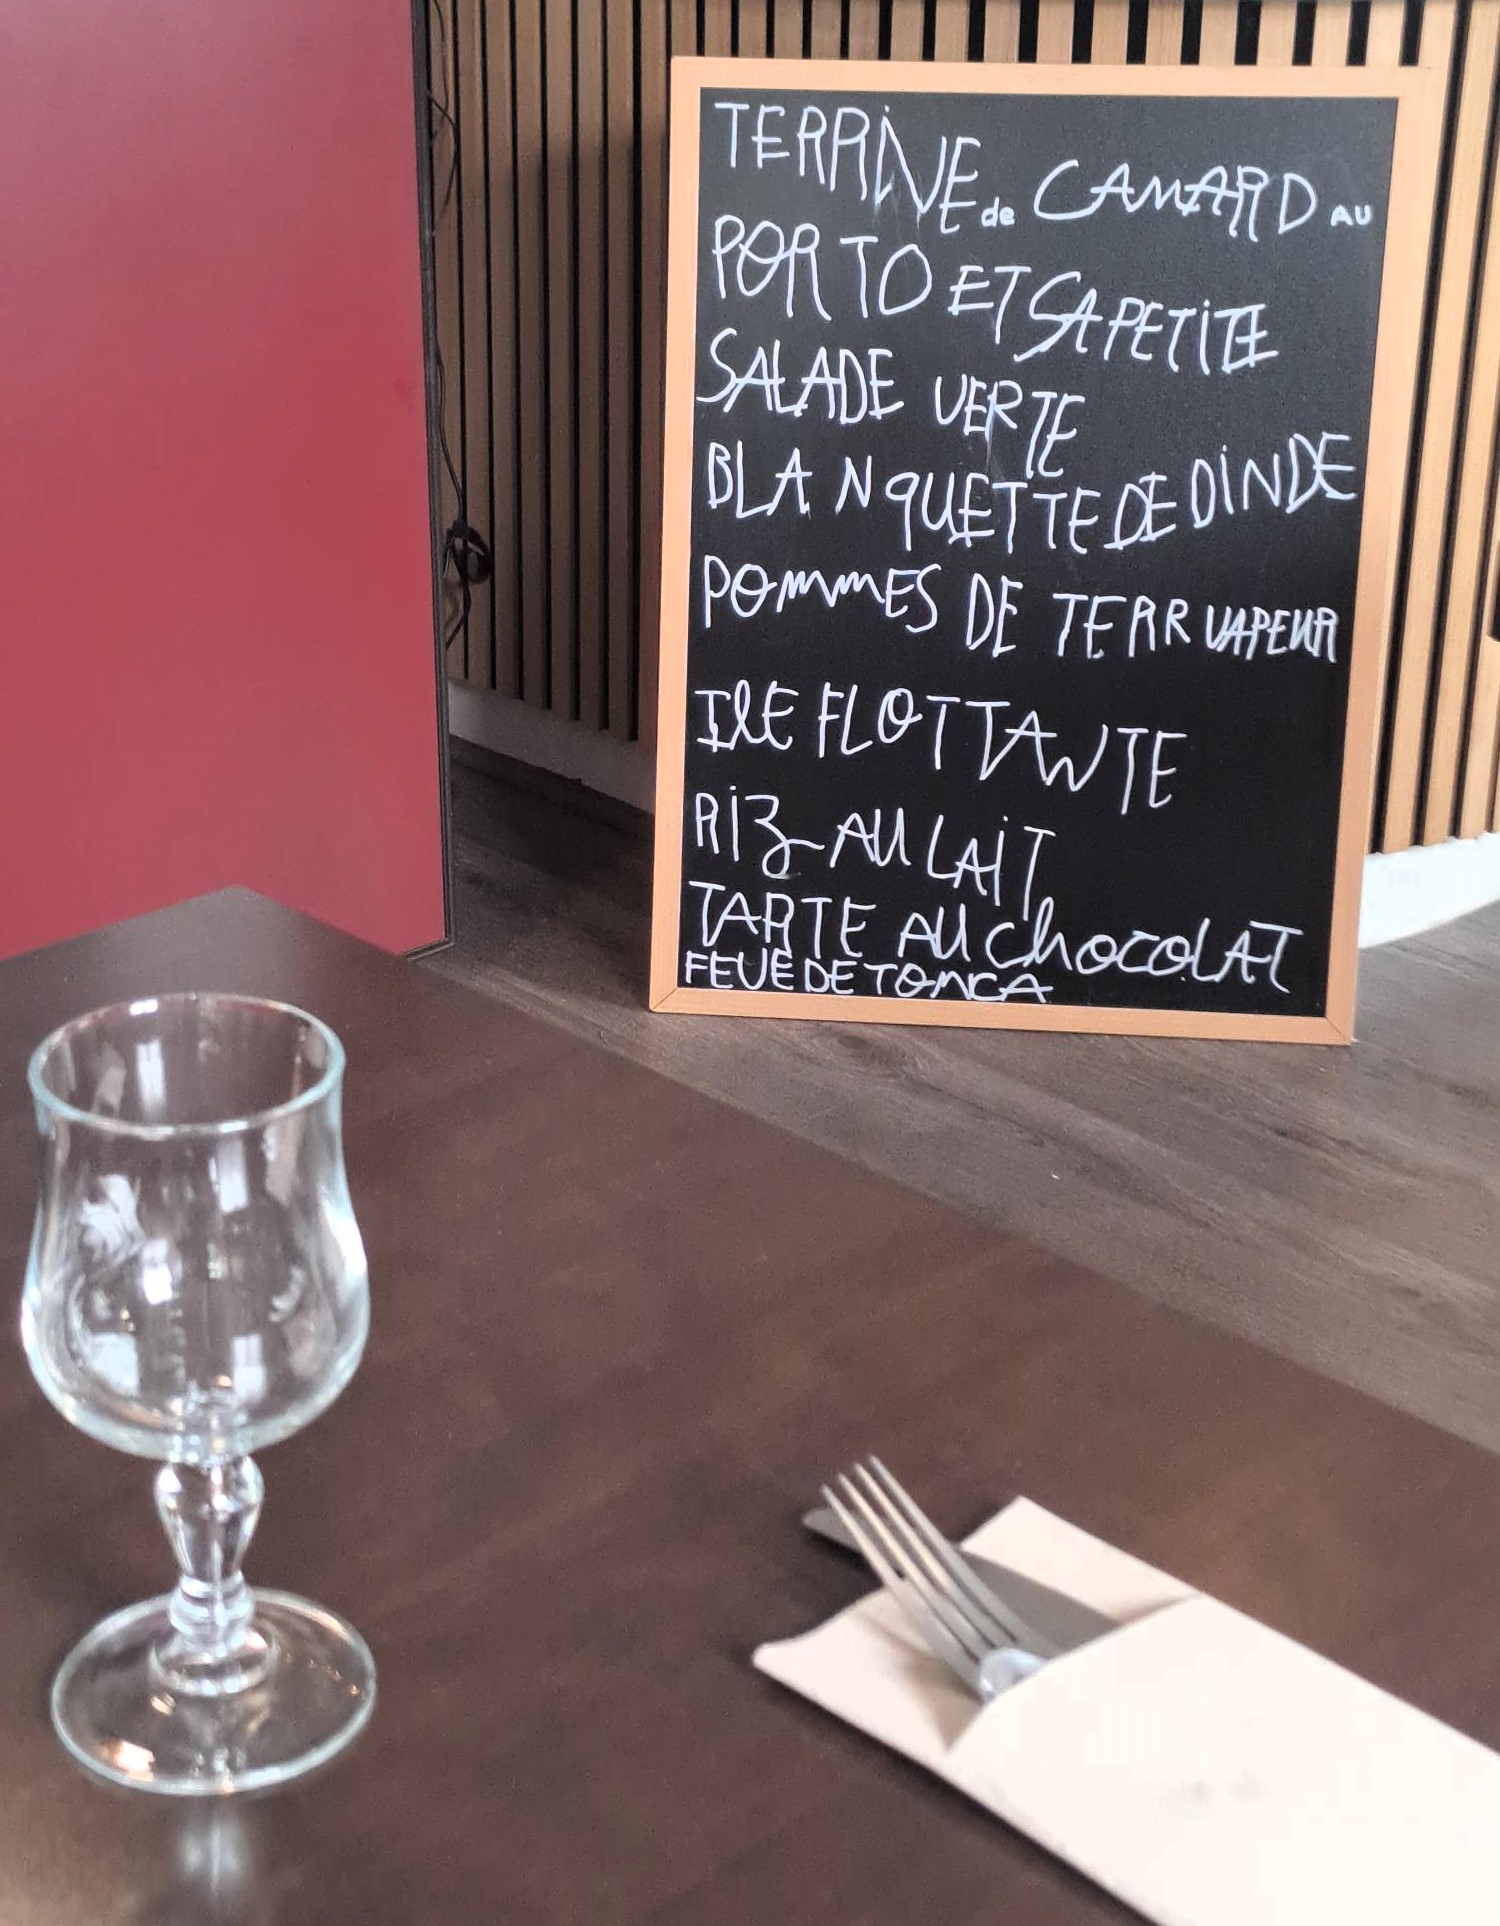 TERRINE de CANARD AU
PORTO ET SA PETITE
SALADE VERTE
BLANQUETTE DE DINDE
POMMES DE TERR VAPEUR
ILE FLOTTANTE
RIZ AU LAIT
TARTE AU ChOCOLAT
FEVE DE TONCA